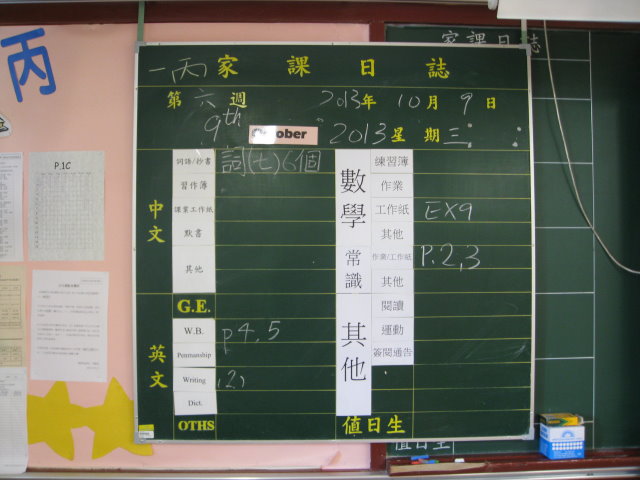 丙
P.1C
家課日誌
一丙 家課日誌
第六週 2013年10月9日
9th October 2013 星期三
中文
詞語/抄書 詞(七)6個
習作簿
課業工作紙
默書
其他
英文
G.E.
W.B. p4,5
Penmanship
Writing (2)
Dict.
OTHS
數學
練習簿
作業
工作紙 EX9
其他
常識
作業/工作紙 P.2,3
其他
其他
閱讀
運動
簽閱通告
值日生
值日生